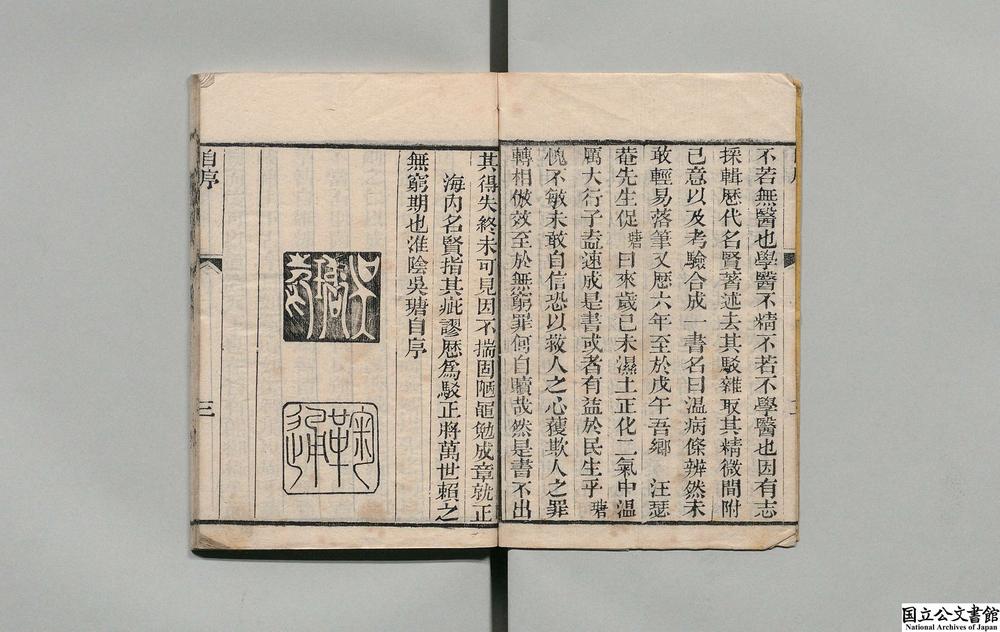 不若無醫也學醫不精不若不學醫也因有志
採輯歷代名賢著述去其駁雜取其精微間附
己意以及考驗合成一書名曰溫病條辨然未
敢輕易落筆又歷六年至於戊午吾鄉 汪瑟
菴先生促瑭曰來歲己未濕土正化二氣中溫
厲大行子盍速成是書或者有益於民生乎瑭
愧不敏未敢自信恐以救人之心獲欺人之罪
轉相倣效至於無窮罪何自贖哉然是書不出
其得失終未可見因不揣固陋黽勉成章就正
海內名賢指其疵謬歷爲駁正將萬世賴之
無窮期也淮陰吳瑭自序
自序
三
国立公文書館
National Archives of Japan